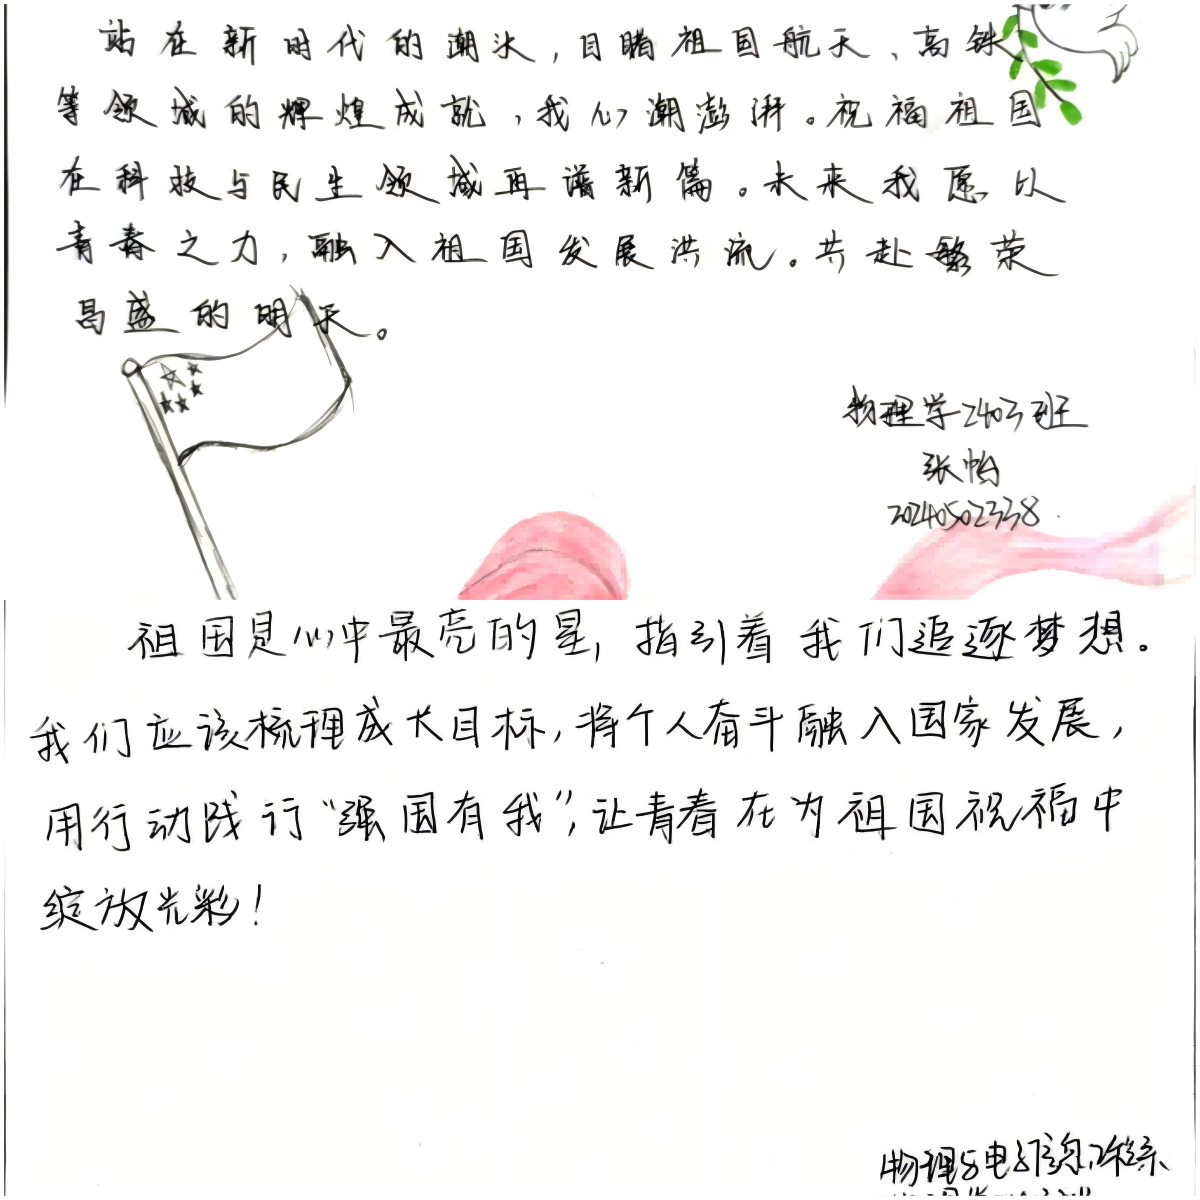 站在新时代的潮头，目睹祖国航天、高铁
等领域的辉煌成就，我心潮澎湃。祝福祖国
在科技与民生领域再谱新篇。未来我愿以
青春之力，融入祖国发展洪流。共赴繁荣
昌盛的明天。
物理学2403班
张怡
20240502338
祖国是心中最亮的星，指引着我们追逐梦想。
我们应该梳理成大目标，将个人奋斗融入国家发展，
用行动践行“强国有我”，让青春在为祖国祝福中
绽放光彩！
物理与电子信息工程系